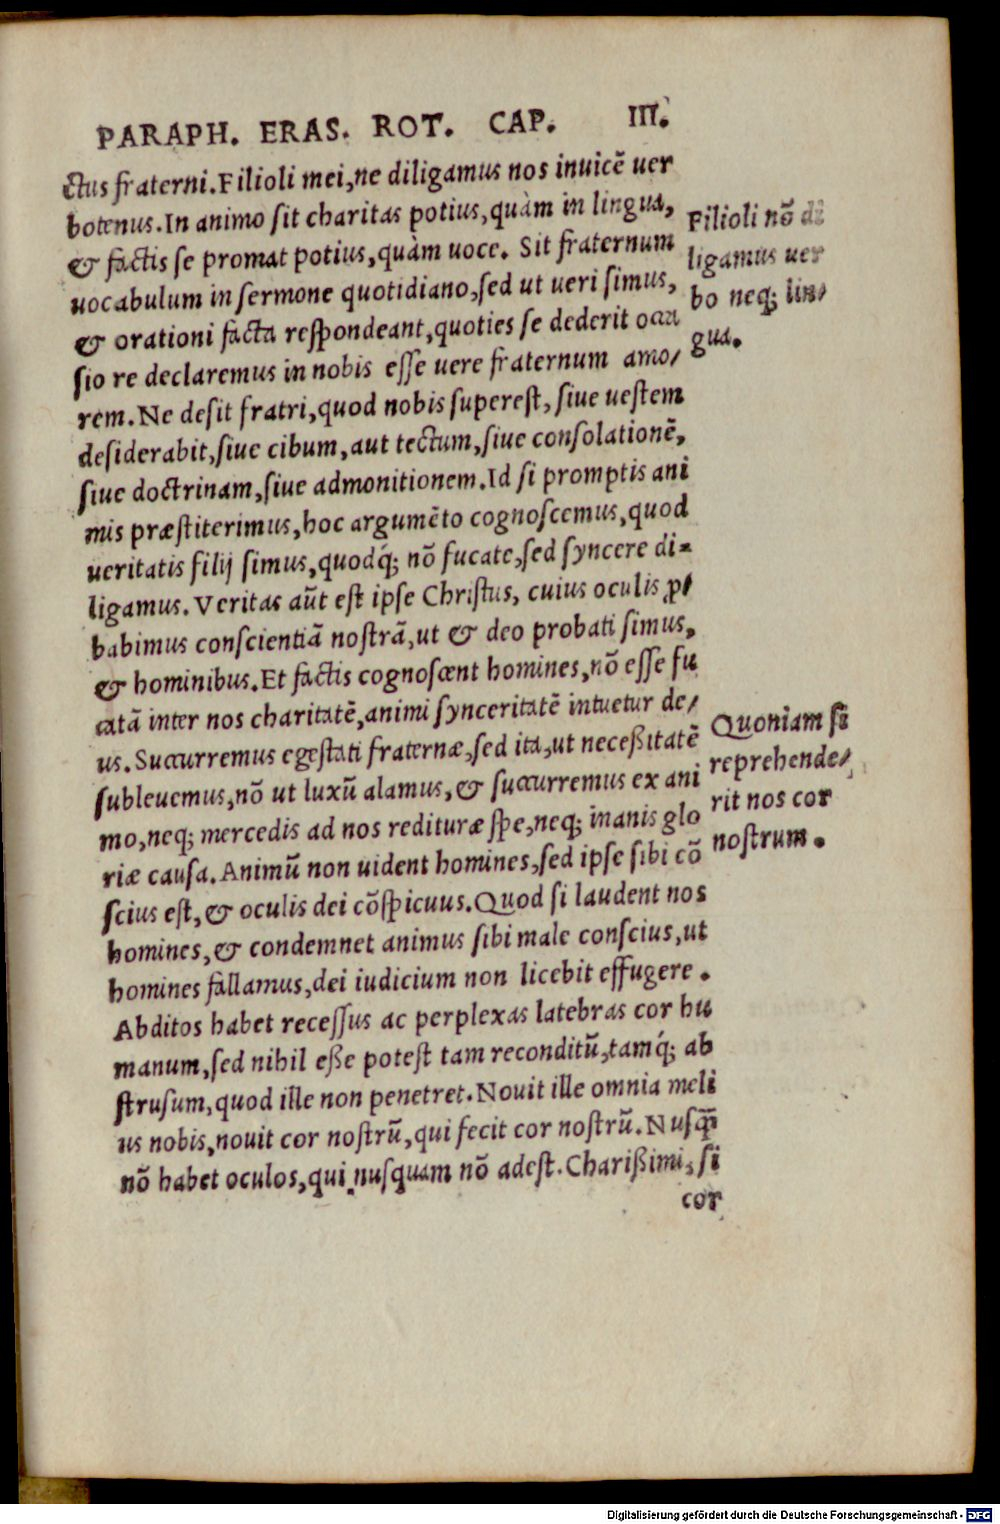 PARAPH. ERAS. ROT. CAP. III.
ctus fraterni. Filioli mei, ne diligamus nos inuicẽ uer
botenus. In animo sit charitas potius, quàm in lingua,
& factis se promat potius, quàm uoce. Sit fraternum
uocabulum in sermone quotidiano, sed ut ueri simus,
& orationi facta respondeant, quoties se dederit occa
sio re declaremus in nobis esse uere fraternum amo/
rem. Ne desit fratri, quod nobis superest, siue uestem
desiderabit, siue cibum, aut tectum, siue consolationẽ,
siue doctrinam, siue admonitionem. Id si promptis ani
mis præstiterimus, hoc argumẽto cognoscemus, quod
ueritatis filij simus, quodq́; nõ fucate, sed syncere di-
ligamus. Veritas aũt est ipse Christus, cuius oculis ꝓ/
babimus conscientiã nostrã, ut & deo probati simus,
& hominibus. Et factis cognoscent homines, nõ esse fu
catã inter nos charitatẽ, animi synceritatẽ intuetur de/
us. Succurremus egestati fraternæ, sed ita, ut neceßitatẽ
subleuemus, nõ ut luxũ alamus, & succurremus ex ani
mo, neq; mercedis ad nos redituræ spe, neq; inanis glo
riæ causa. Animũ non uident homines, sed ipse sibi cõ
scius est, & oculis dei cõspicuus. Quod si laudent nos
homines, & condemnet animus sibi male conscius, ut
homines fallamus, dei iudicium non licebit effugere.
Abditos habet recessus ac perplexas latebras cor hu
manum, sed nihil eße potest tam reconditũ, tamq́; ab
strusum, quod ille non penetret. Nouit ille omnia meli
us nobis, nouit cor nostrũ, qui fecit cor nostrũ. Nusq̃
nõ habet oculos, qui nusquam nõ adest. Charißimi, si
cor
Filioli nõ di
ligamus uer
bo neq; lin/
gua.
Quoniam si
reprehende/
rit nos cor
nostrum.
Digitalisierung gefördert durch die Deutsche Forschungsgemeinschaft - DFG